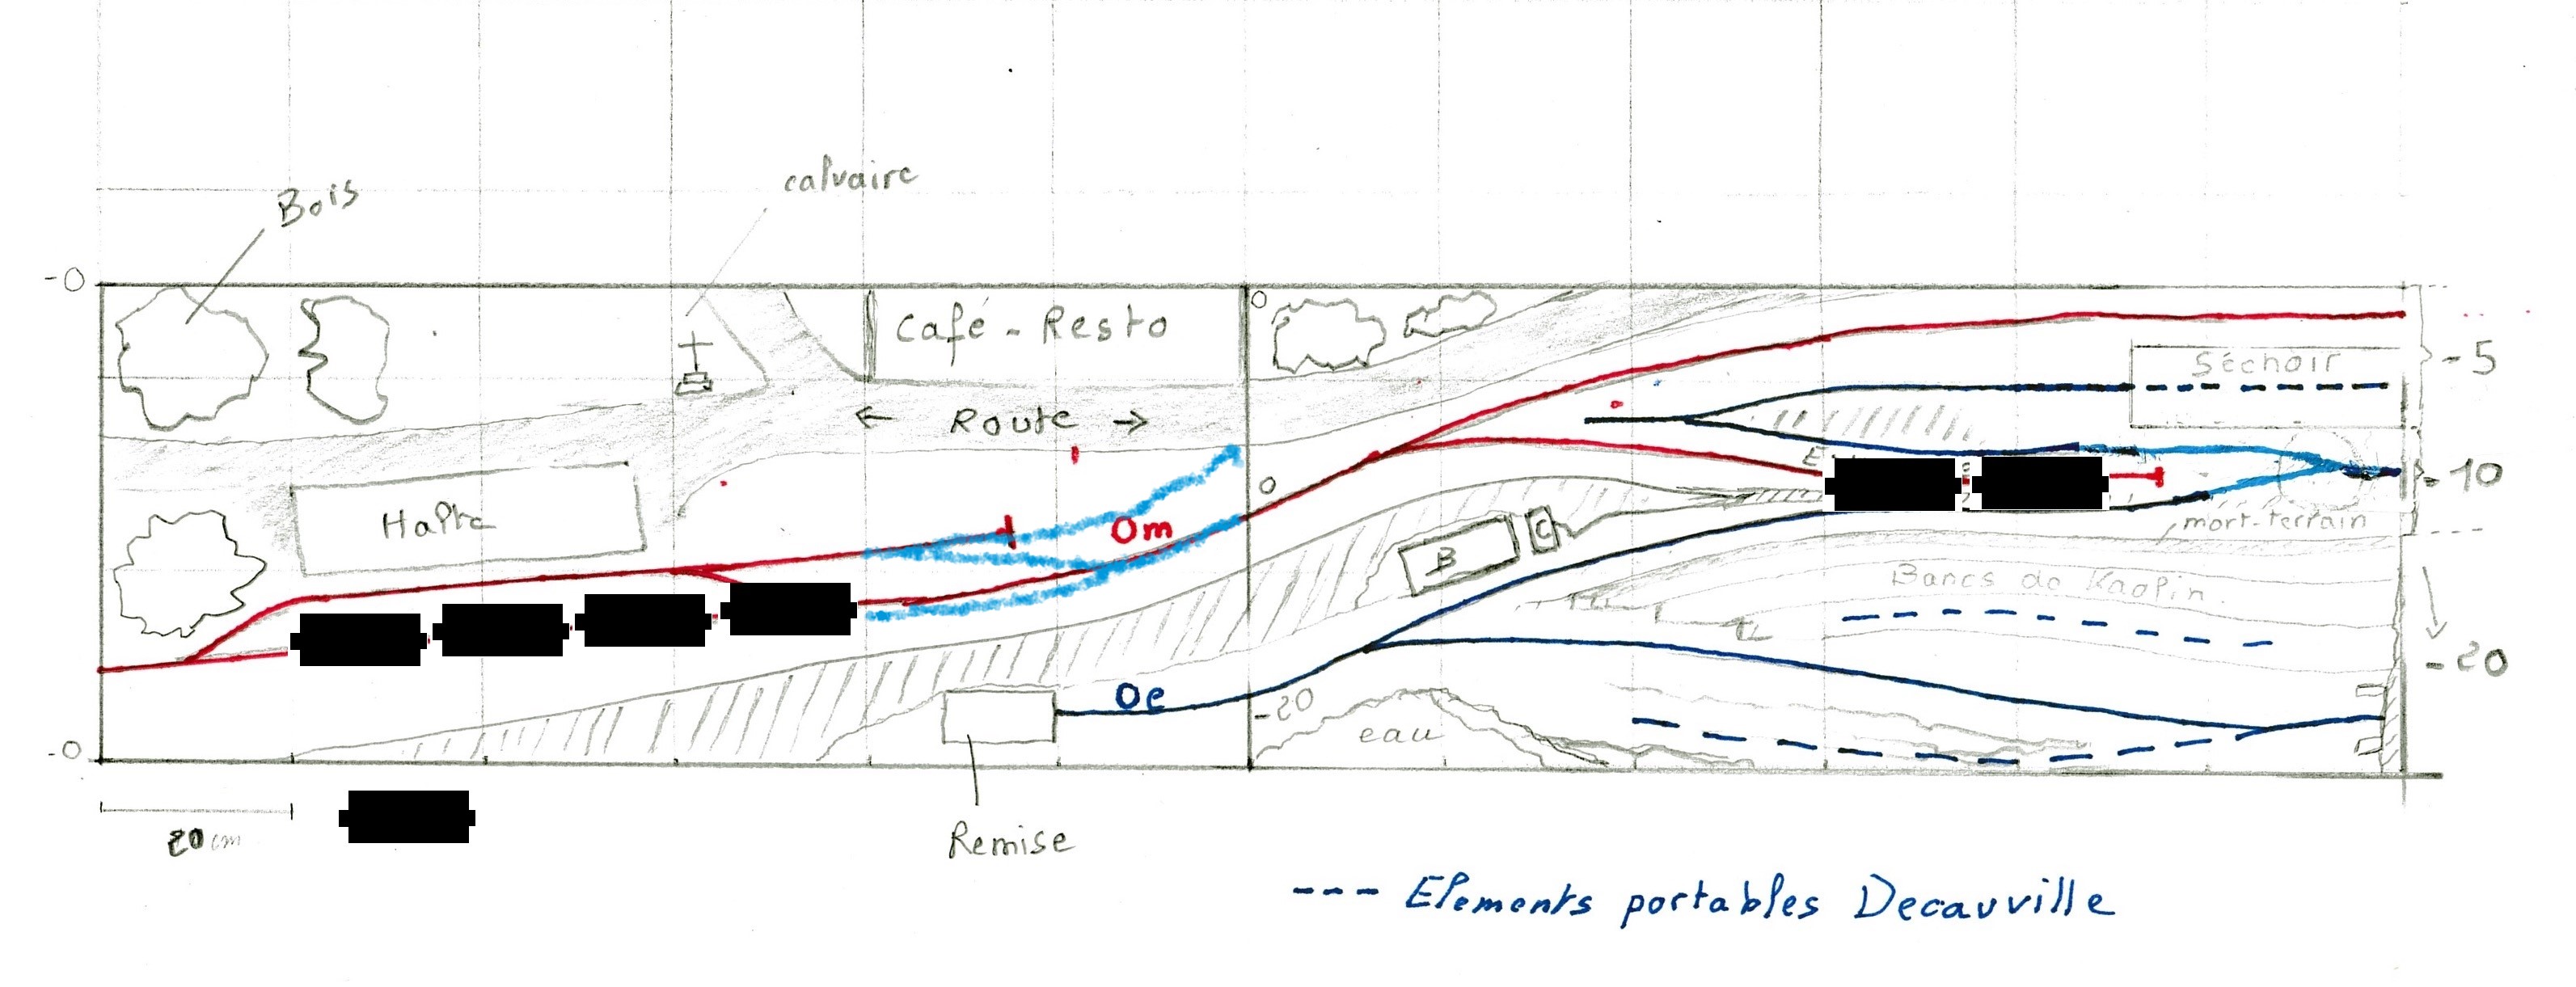 Bois
calvaire
-0
0
Café-Resto
Séchoir
-5
← Route →
Halte
0
Om
-10
mort-terrain
B
C
Bancs de Kaolin
-20
Oe
-20
eau
-0
20cm
Remise
--- Elements portables Decauville